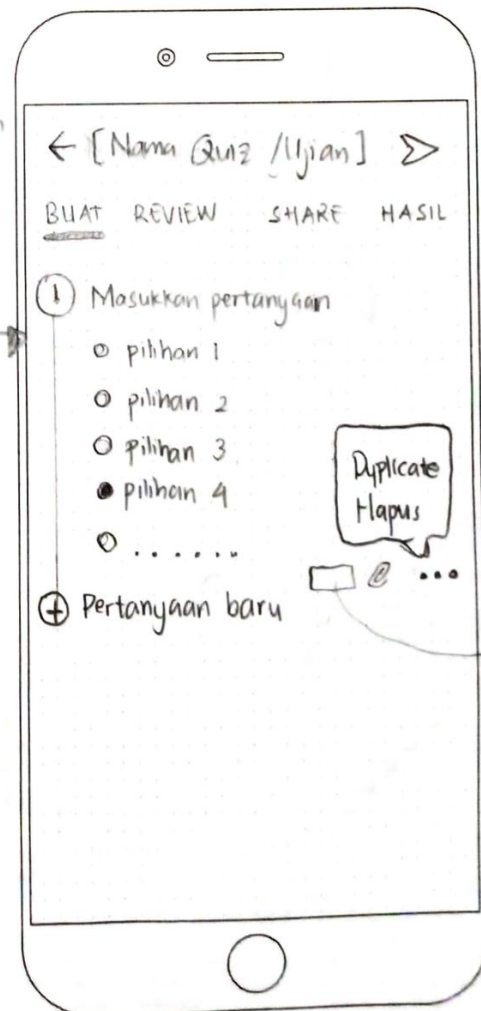 [Nama Quiz /Ujian]
BUAT REVIEW SHARE HASIL
1 Masukkan pertanyaan
pilihan 1
pilihan 2
pilihan 3
pilihan 4
......
Duplicate
Hapus
...
+ Pertanyaan baru